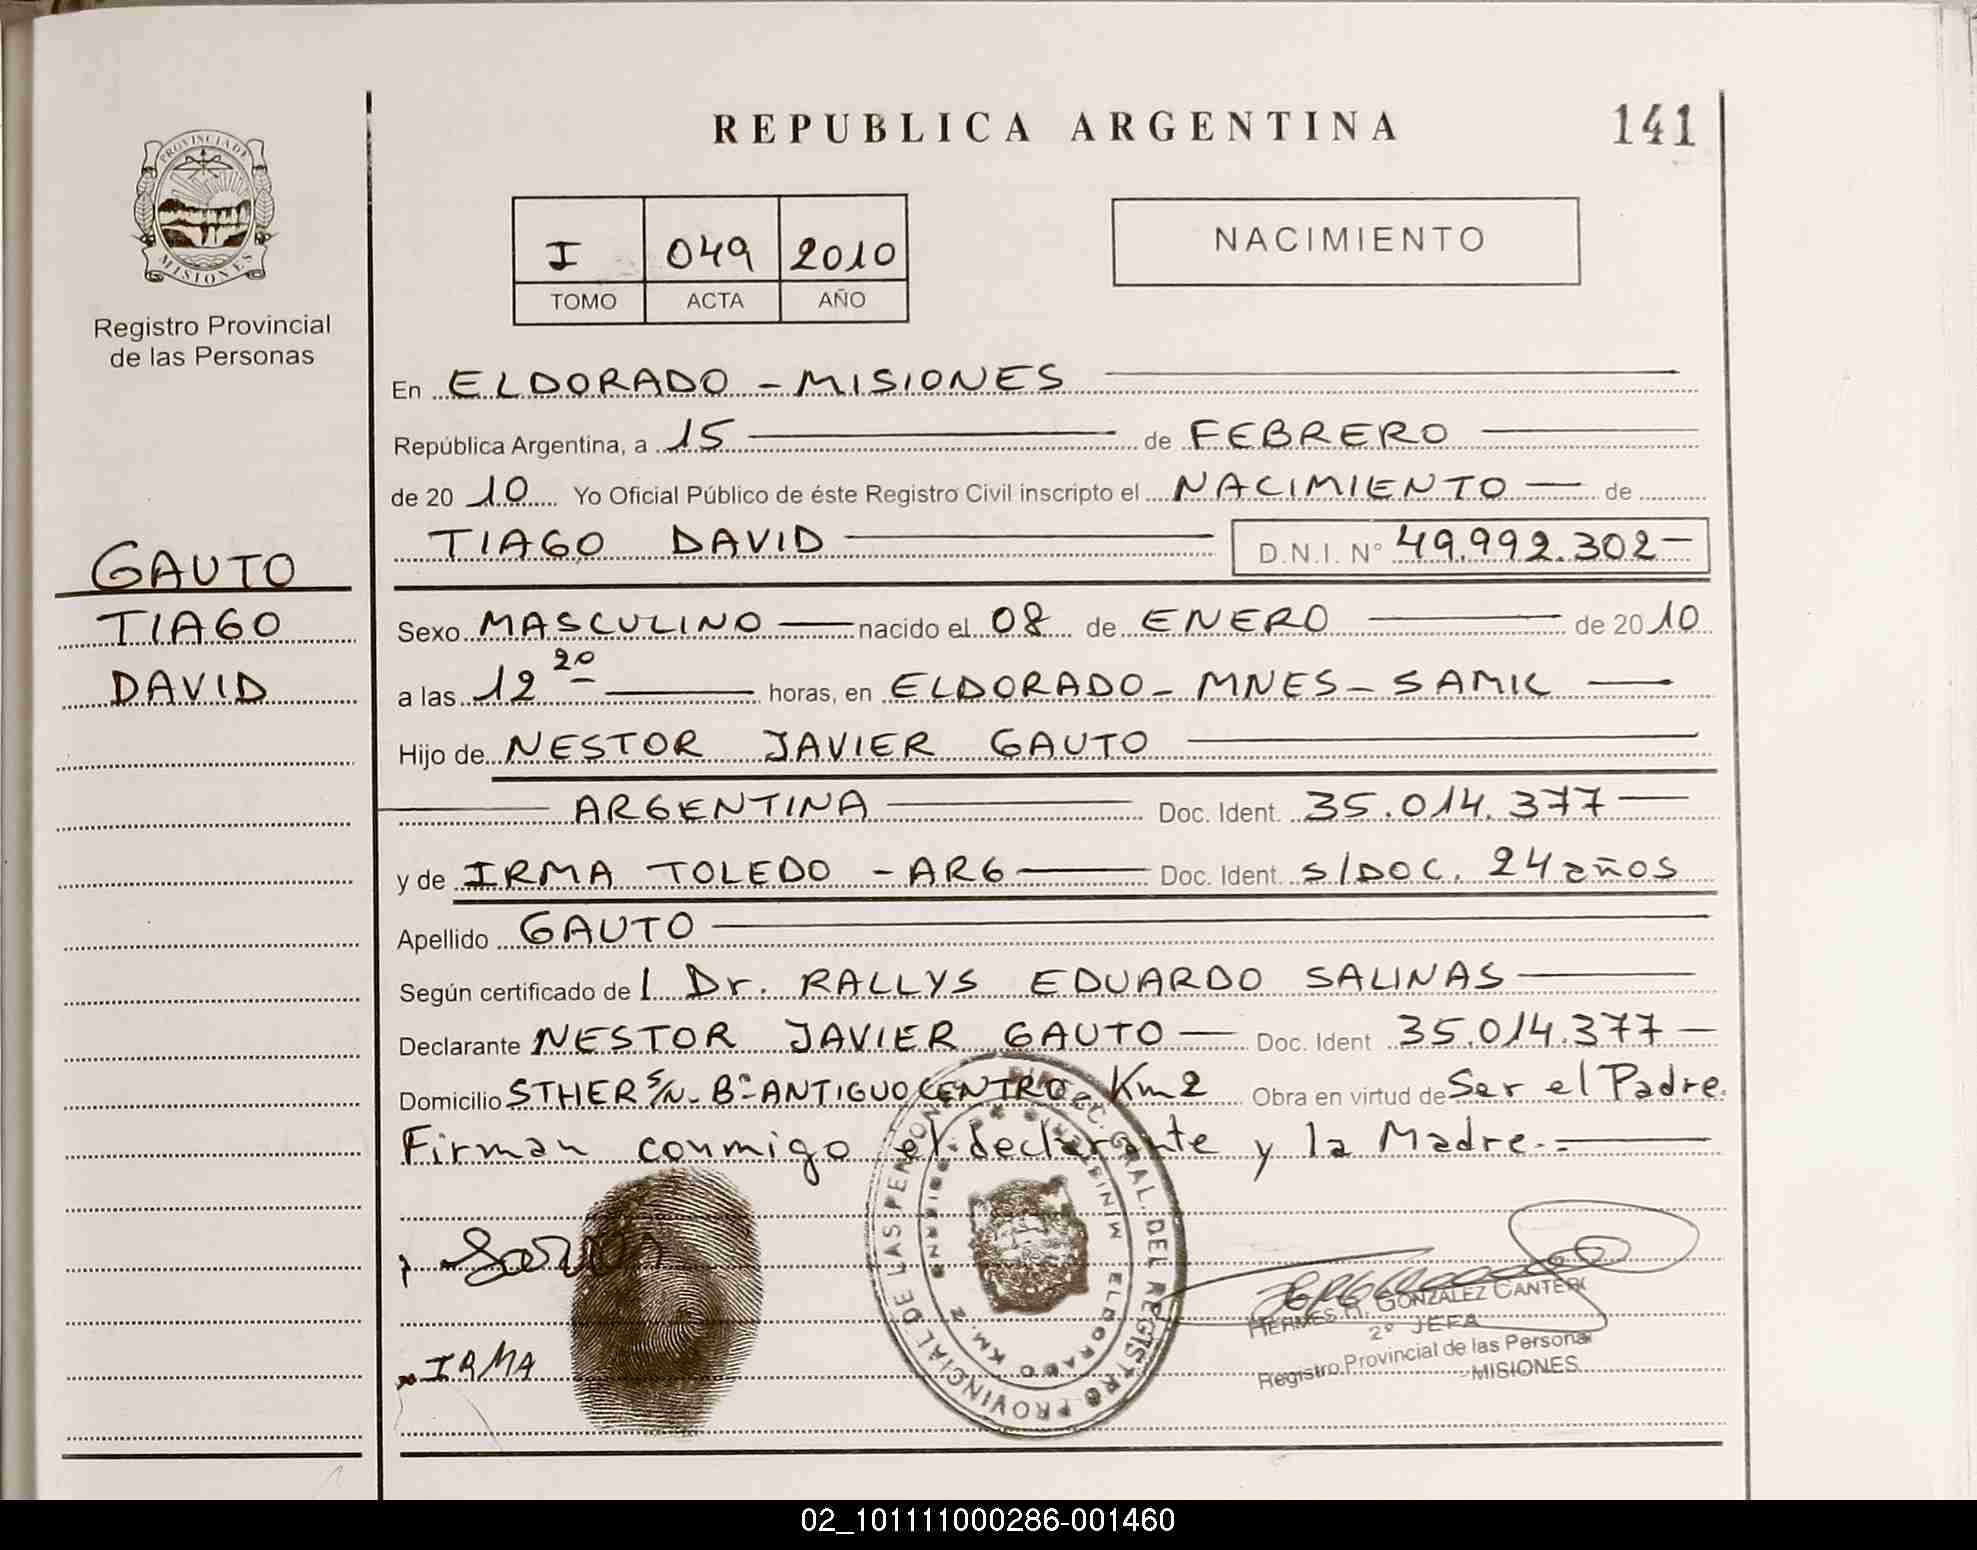 REPUBLICA ARGENTINA
141
PROVINCIA DE
MISIONES
Registro Provincial
de las Personas
I 049 2010
TOMO ACTA AÑO
NACIMIENTO
En ELDORADO - MISIONES
República Argentina, a 15 de FEBRERO
de 20 10 Yo Oficial Público de éste Registro Civil inscripto el NACIMIENTO de
TIAGO DAVID D.N.I. Nº 49.992.302
GAUTO
TIAGO
DAVID
Sexo MASCULINO nacido el 08 de ENERO de 20 10
a las 12 20 horas, en ELDORADO - MNES - SAMIC
Hijo de NESTOR JAVIER GAUTO
ARGENTINA Doc. Ident. 35.014.377
y de IRMA TOLEDO - ARG Doc. Ident. S/DOC. 24 años
Apellido GAUTO
Según certificado de l Dr. RALLYS EDUARDO SALINAS
Declarante NESTOR JAVIER GAUTO Doc. Ident 35.014.377
Domicilio STHER S/N - Bº ANTIGUO CENTRO Km 2 Obra en virtud de Ser el Padre.
Firman conmigo el declarante y la Madre.-
IRMA
DIREC. GRAL. DEL REGISTRO PROVINCIAL DE LAS PERSONAS
ELDORADO KM. 2
HERMES H. GONZALEZ CANTERO
2º JEFA
Registro Provincial de las Personas
-MISIONES
02_101111000286-001460